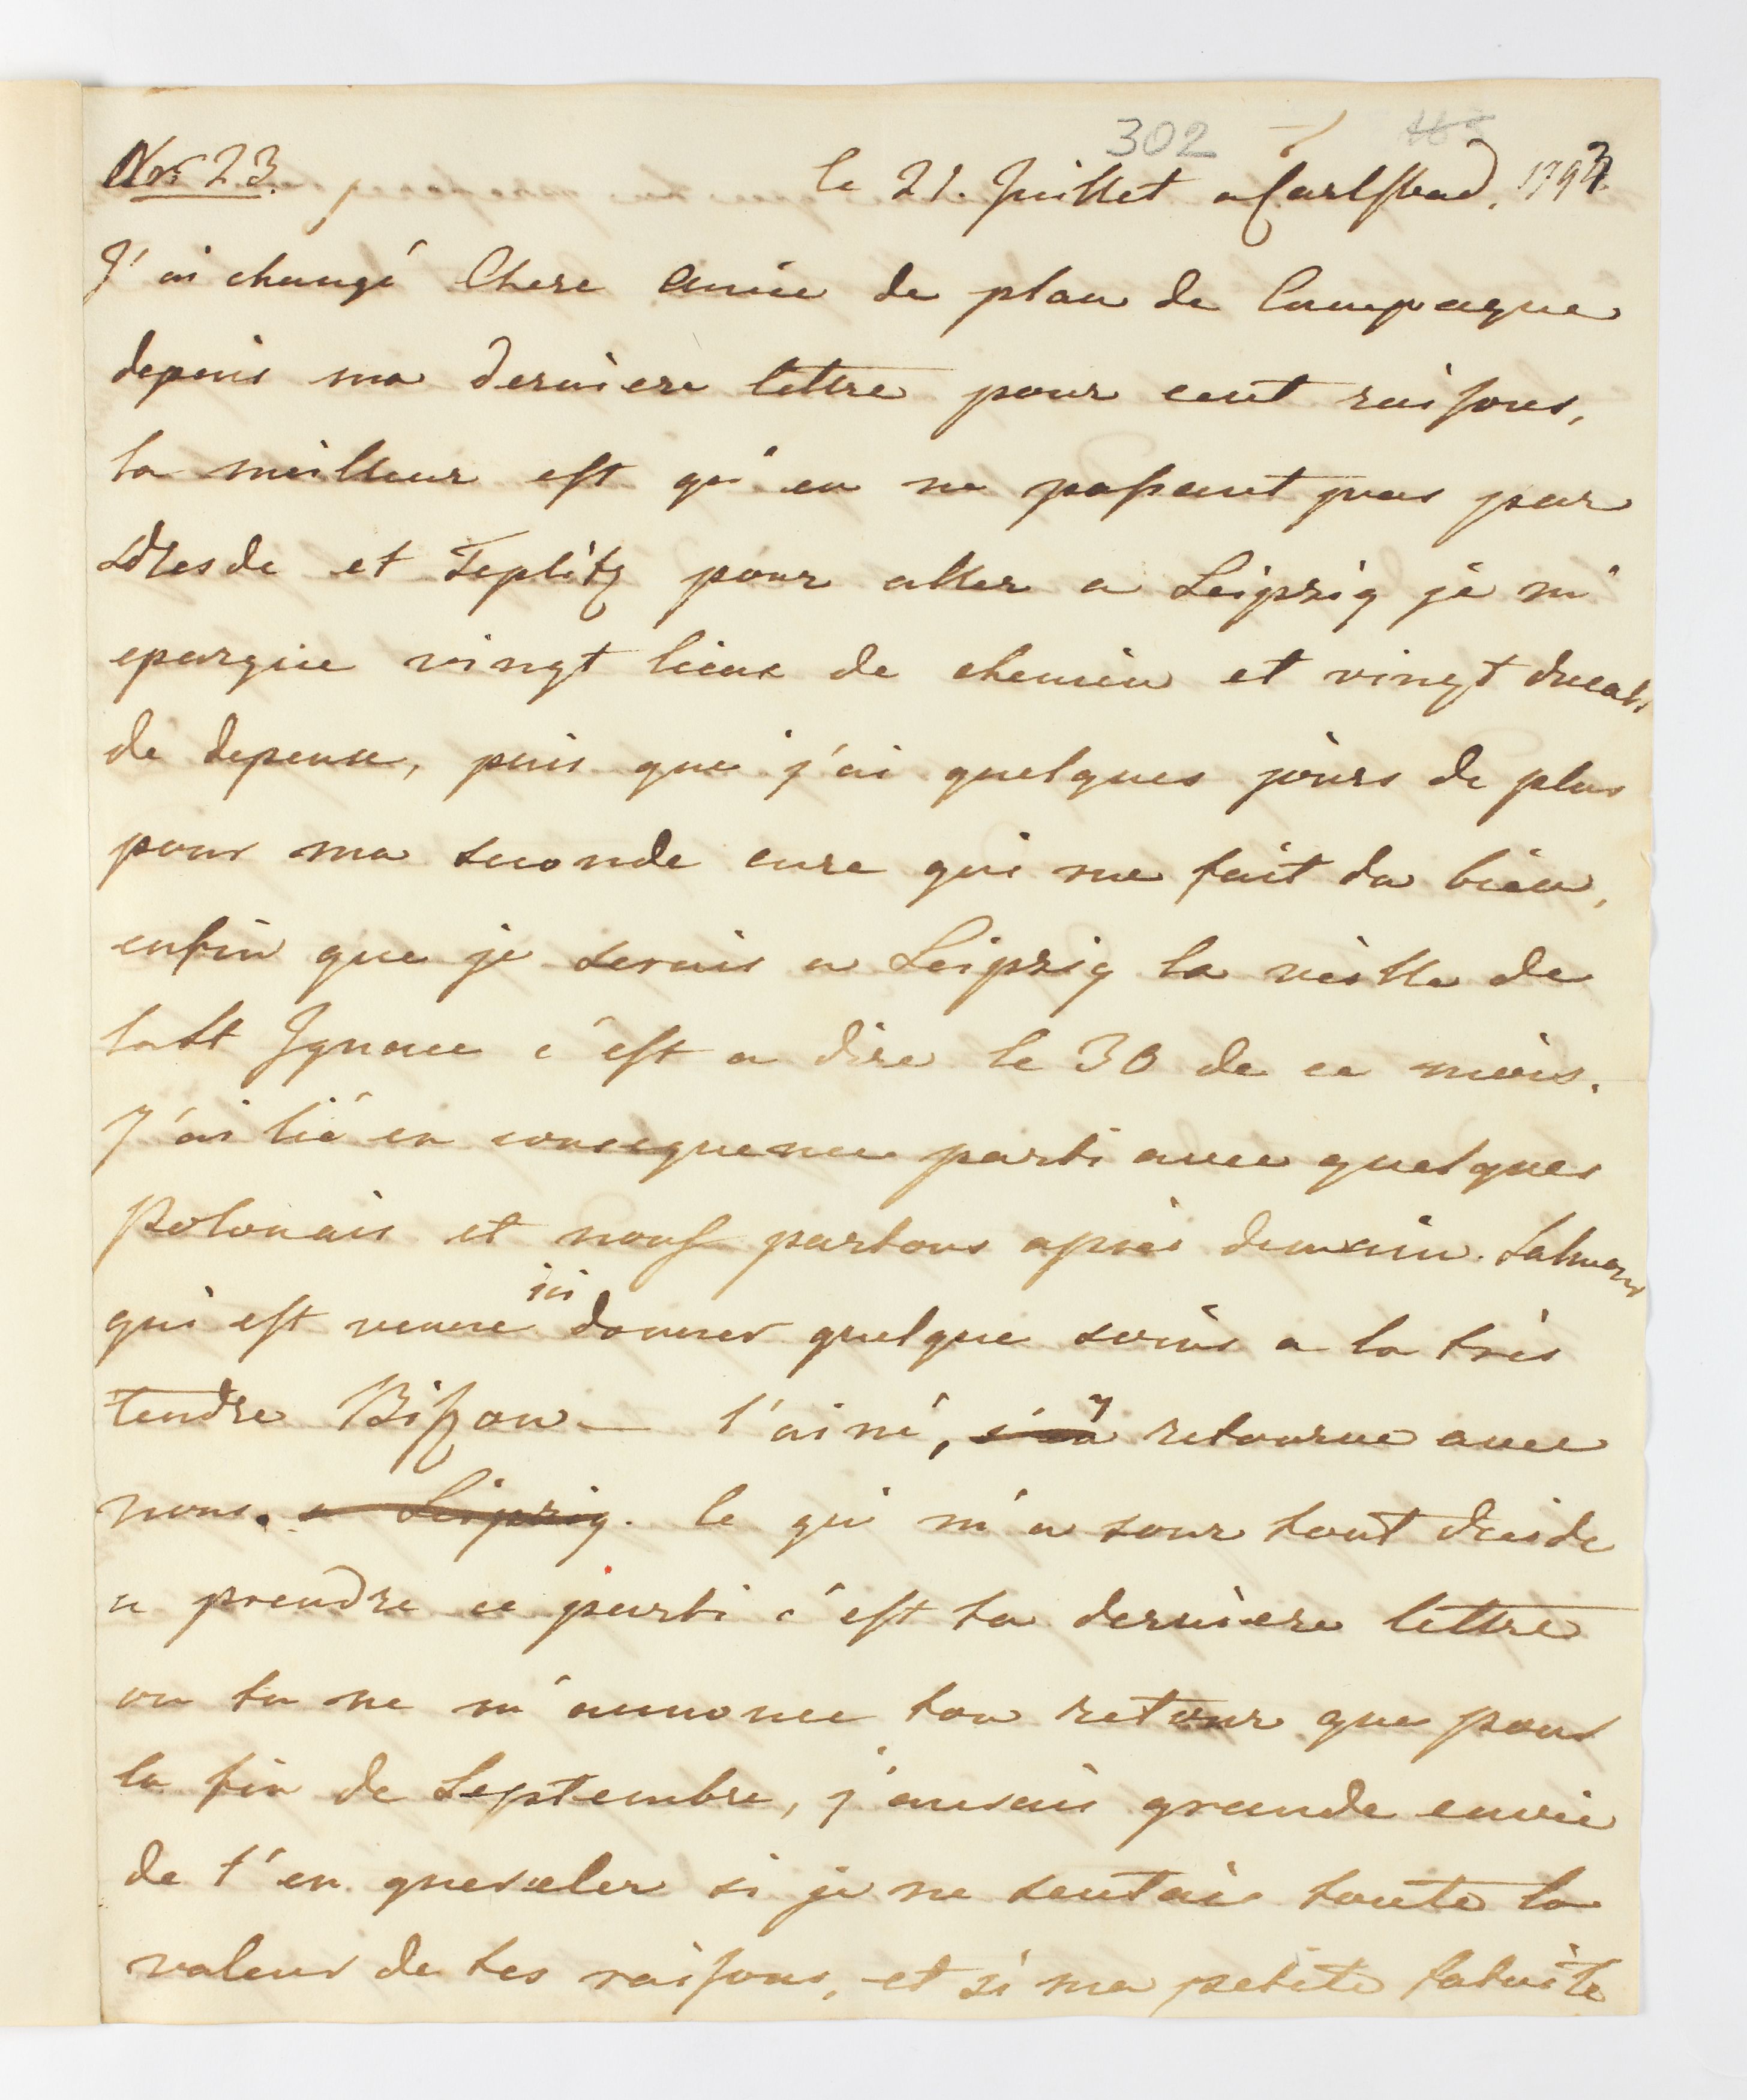 302
Nro 23. le 21. Juillet a Carlsbad, 1793
J'ai changé Chere Amie de plan de Campagne
depuis ma derniere lettre pour cent raisons,
la meilleur est qu'en ne passant pas par
Dresde et Teplitz pour aller a Leipzig je m'
epargne vingt lieux de chemin et vingt ducats
de depense, puis que j'ai quelques jours de plus
pour ma seconde cure qui me fait du bien,
enfin que je serais a Leipzig la veille de
la St Ignace c'est a dire le 30 de ce mois.
J'ai lié en consequence parti avec quelques
Polonais et nous partons après demain.
qui est venue ici donner quelque soins a la très
tendre l'ainé, y retourne avec
nous. a Leipzig. Ce qui m'a sour tout decide
a prendre ce parti c'est ta derniere lettre
ou tu ne m'annonce ton retour que pour
la fin de Septembre, j'aurais grande envie
de t'en quereler si je ne sentais toute la
valeur de tes raisons, et si ma petite fatuité